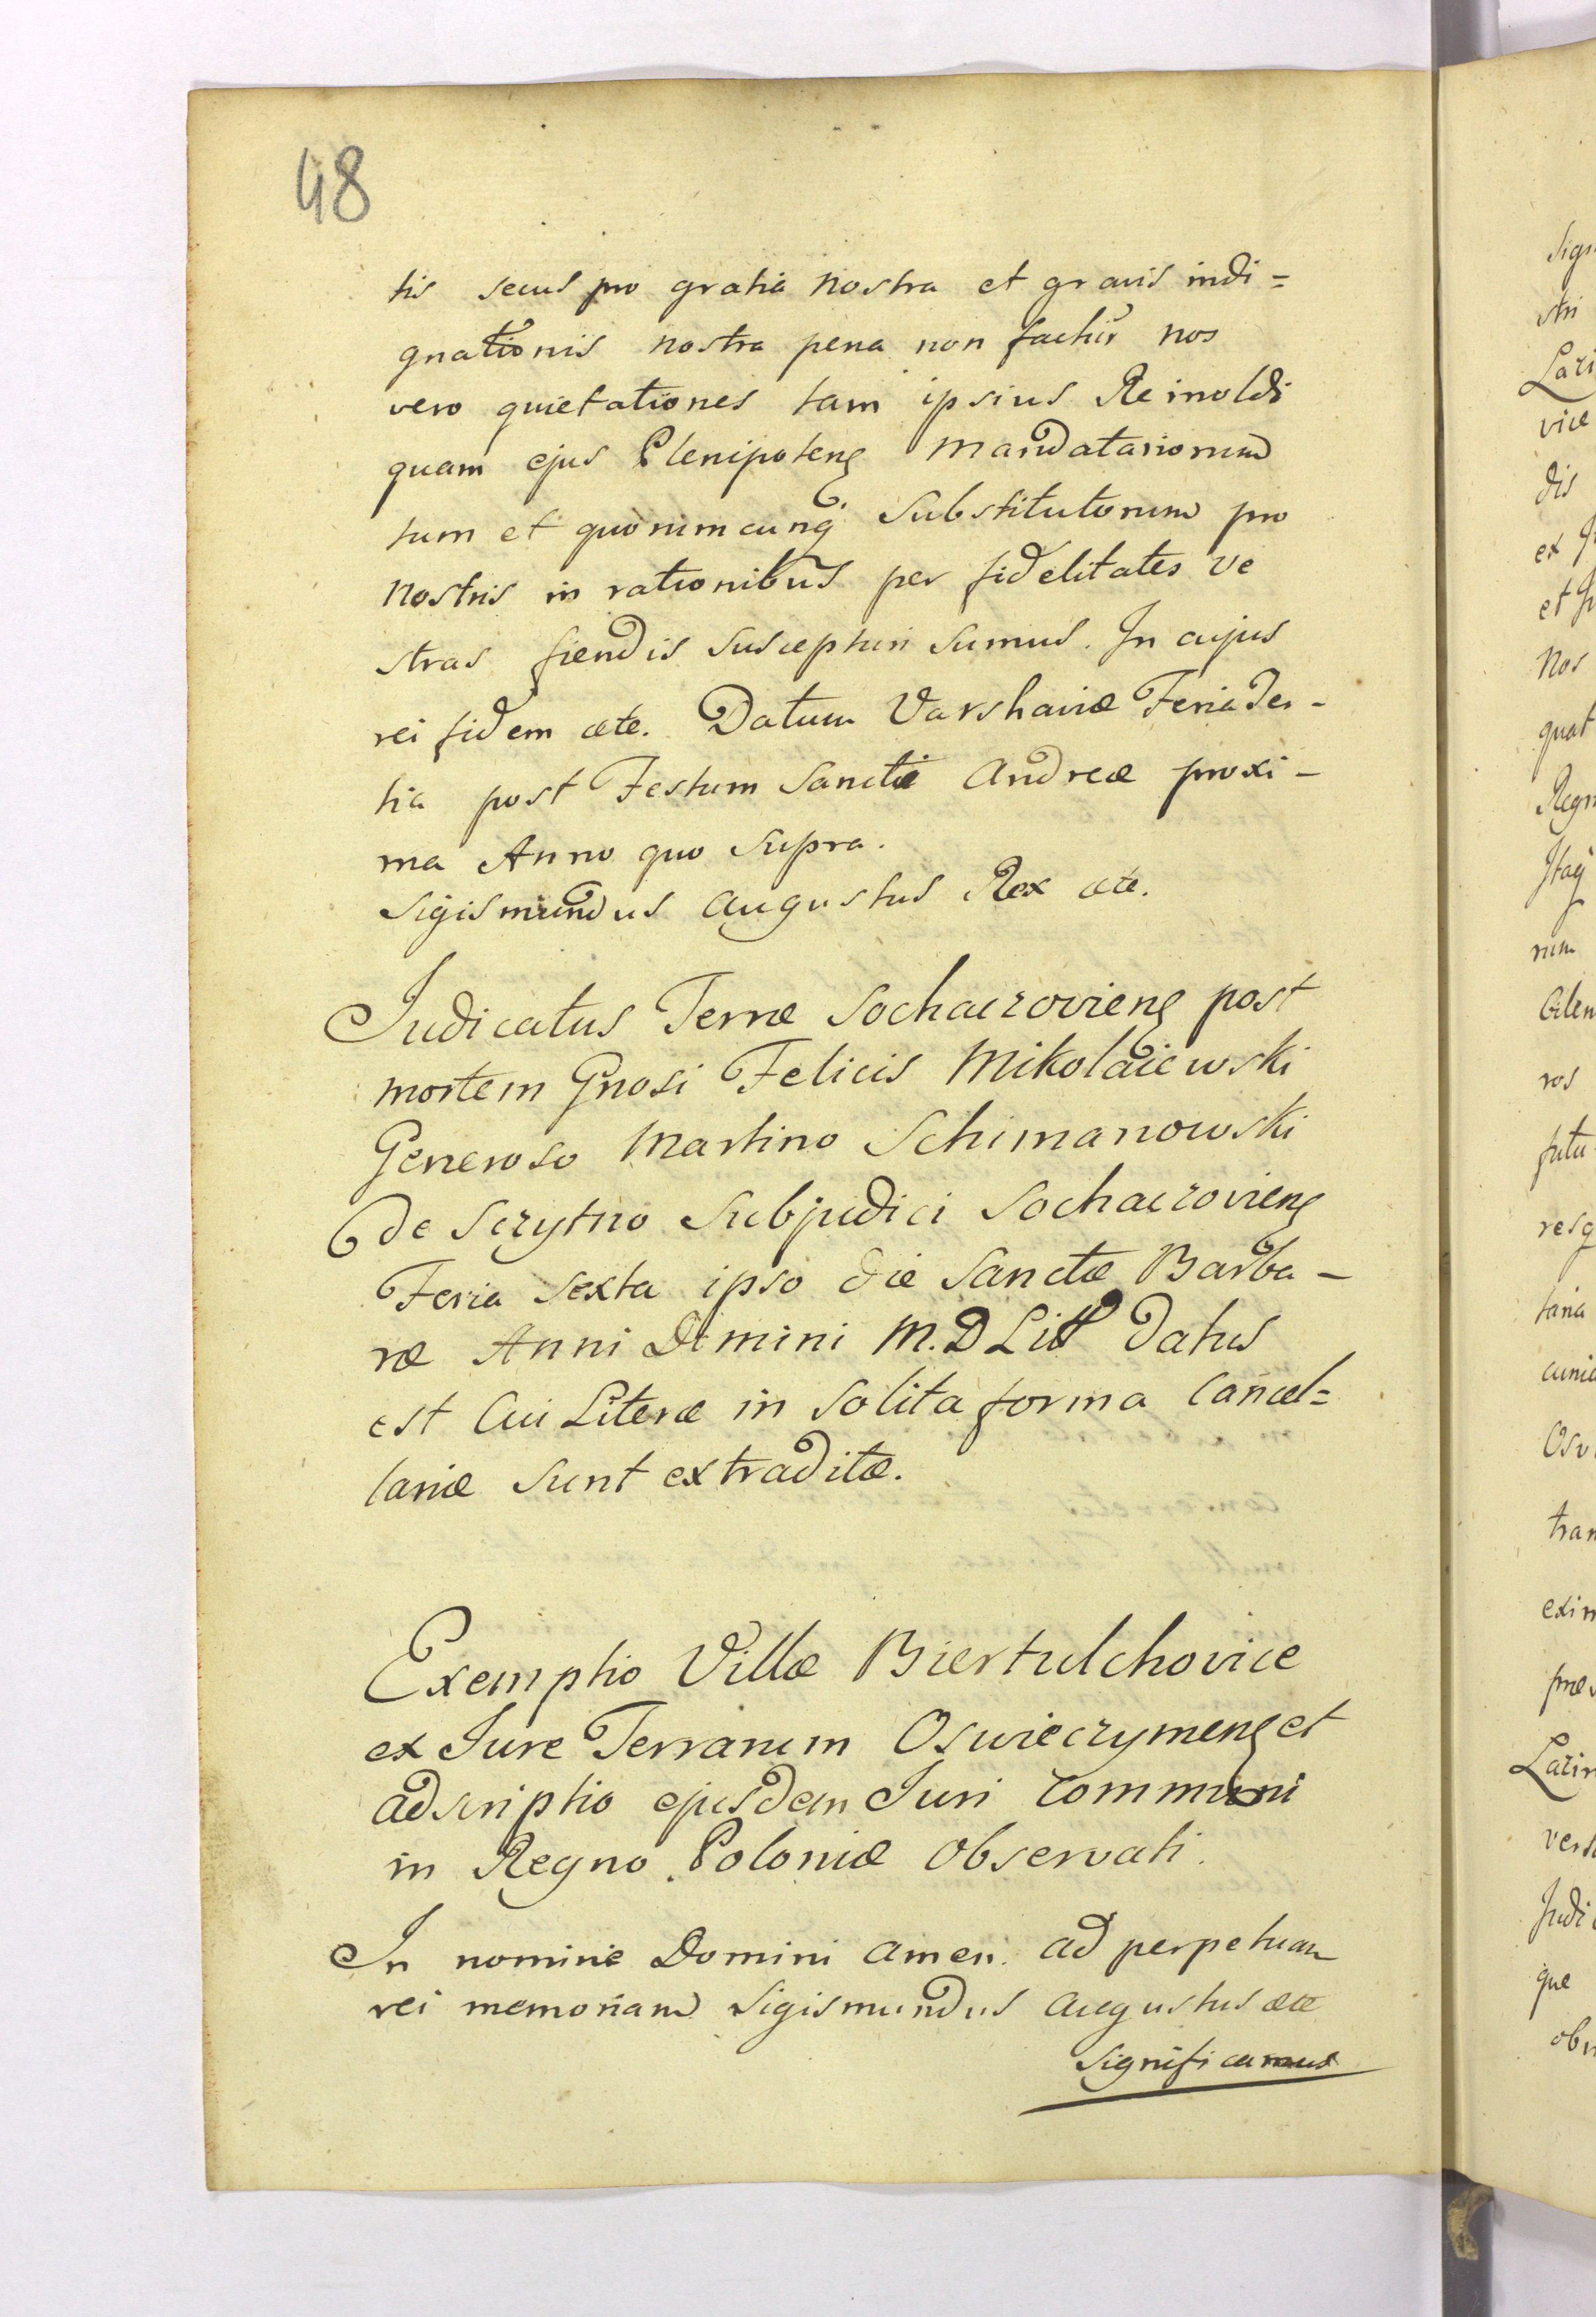 48
tis secus pro gratia nostra et gravis indi=
gnationis nostra pena non factur nos
vero quietationes tam ipsius Reinoldi
quam ejus Plenipotenς Mandatariorum
tum et quorumcunq̃ Substitutorum pro
nostris in rationibus per fidelitates ve
stras fiendis suscepturi sumus. In cujus
rei fidem ete. Datum Varshaviæ Feria Ter-
tia post Festum Sanctæ Andreæ proxi-
ma Anno quo supra.
Sigismundus Augustus Rex ete.
Judicatus Terræ Sochaczovienς post
mortem Gnosi Felicis Mikolaiewski
Generoso Martino Schimanowski
de Sczytno Subjudici Sochaczovienς
Feria Sexta ipso die Sanctæ Barba-
ræ Anni Domini M.D.LII datus
est Cui Literæ in solita forma Cancel=
lariæ sunt extraditæ.
Exemptio Villæ Biertulchovice
ex Jure Terrarum Oswieczymenς et
adscriptio ejusdem Juri Communi
in Regno Poloniæ observati.
In nomine Domini Amen. Ad perpetuam
rei memoriam Sigismundus Augustus ete
significamus
sign
stri
Lazi
vice
dis
ex
et
Nos
quat
Regn
Itaq̃
rum
ros
futu
resq
taria
Osv
tran
exim
Lazin
vers
Judi
que